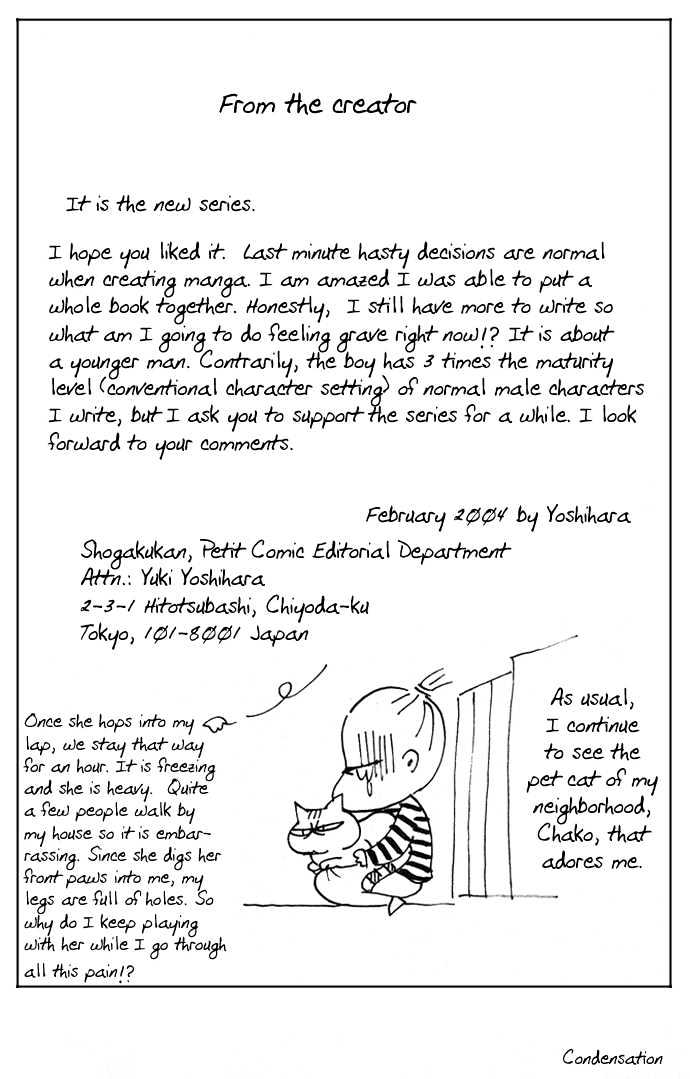 From the creator
It is the new series.
I hope you liked it. Last minute hasty decisions are normal
when creating manga. I am amazed I was able to put a
whole book together. Honestly, I still have more to write so
what am I going to do feeling grave right now!? It is about
a younger man. Contrarily, the boy has 3 times the maturity
level (conventional character setting) of normal male characters
I write, but I ask you to support the series for a while. I look
forward to your comments.
February 2004 by Yoshihara
Shogakukan, Petit Comic Editorial Department
Attn.: Yuki Yoshihara
2-3-1 Hitotsubashi, Chiyoda-ku
Tokyo, 101-8001 Japan
As usual,
I continue
to see the
pet cat of my
neighborhood,
Chako, that
adores me.
Once she hops into my
lap, we stay that way
for an hour. It is freezing
and she is heavy. Quite
a few people walk by
my house so it is embar-
rassing. Since she digs her
front paws into me, my
legs are full of holes. So
why do I keep playing
with her while I go through
all this pain!?
Condensation